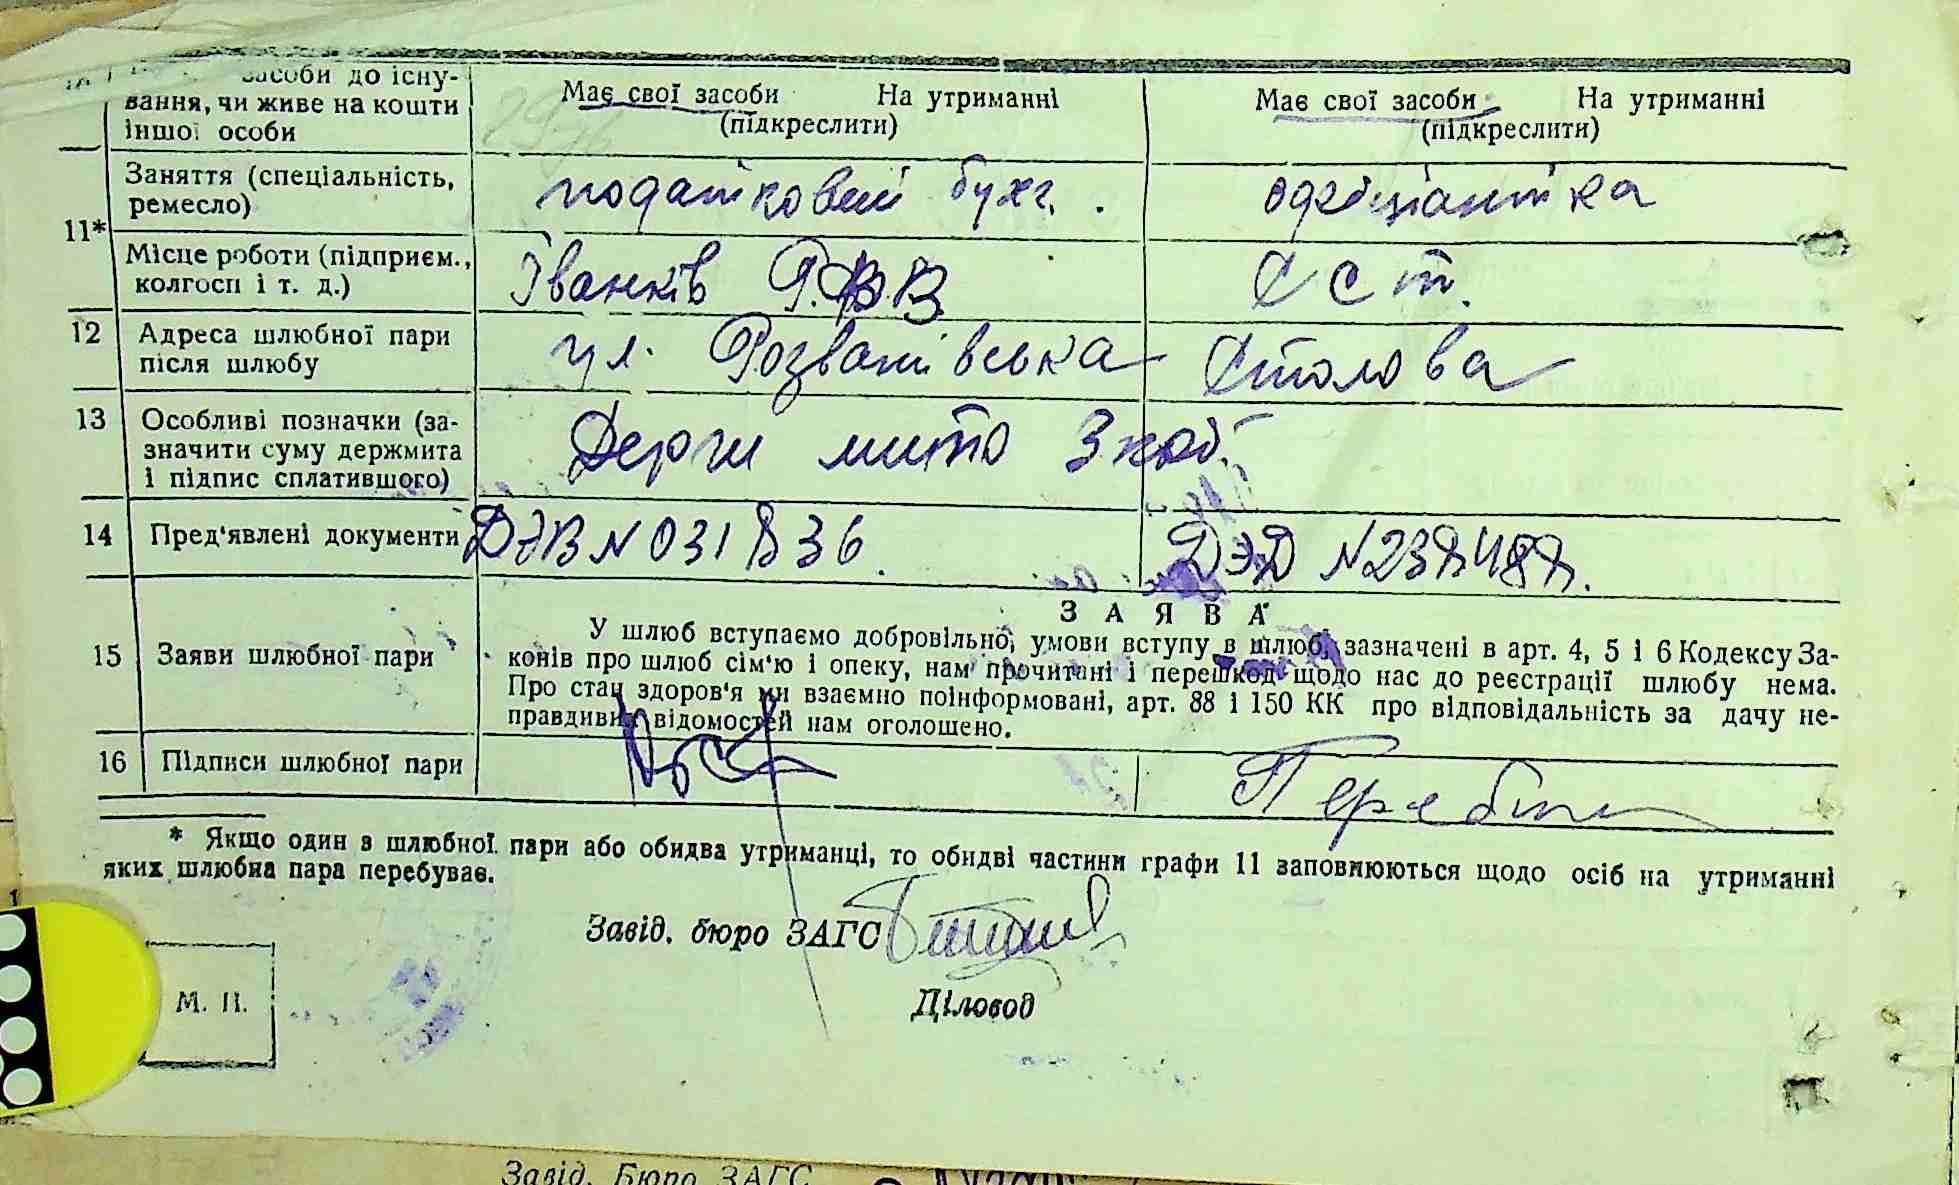 засоби до існу-
вання, чи живе на кошти
іншої особи
Має свої засоби На утриманні
(підкреслити)
Має свої засоби На утриманні
(підкреслити)
11*
Заняття (спеціальність,
ремесло)
податковий бухг.
офіціантка
Місце роботи (підприєм.,
колгосп і т. д.)
Іванків
С С т.
12
Адреса шлюбної пари
після шлюбу
ул. Розважівська Столова
13
Особливі позначки (за-
значити суму держмита
і підпис сплатившого)
Держ мито 3 коб.
14
Пред'явлені документи
ДЭВ N 031836.
ДЭД N
15
Заяви шлюбної пари
ЗАЯВА
У шлюб вступаємо добровільно, умови вступу в шлюб, зазначені в арт. 4, 5 і 6 Кодексу За-
конів про шлюб сім'ю і опеку, нам прочитані і перешкод щодо нас до реєстрації шлюбу нема.
Про стан здоров'я ми взаємно поінформовані, арт. 88 і 150 КК про відповідальність за дачу не-
правдивих відомостей нам оголошено.
16
Підписи шлюбної пари
* Якщо один з шлюбної пари або обидва утриманці, то обидві частини графи 11 заповнюються щодо осіб на утриманні
яких шлюбна пара перебуває.
Завід. бюро ЗАГС
М. П.
Діловод
Завід. Бюро ЗАГС